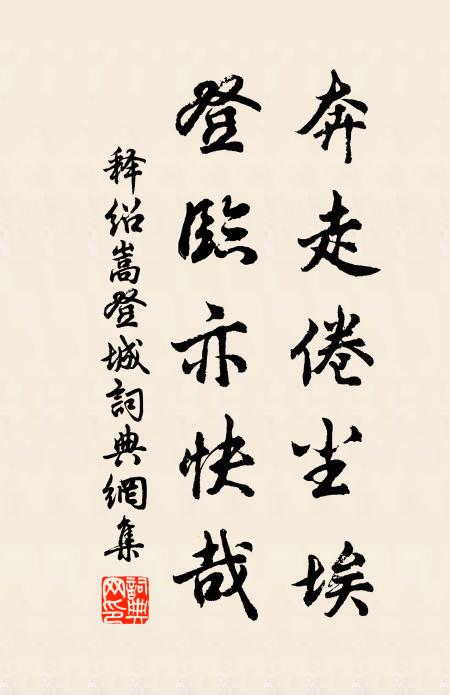 奔走倦尘埃
登临亦快哉
释绍嵩登城詞典網集
詞典網印